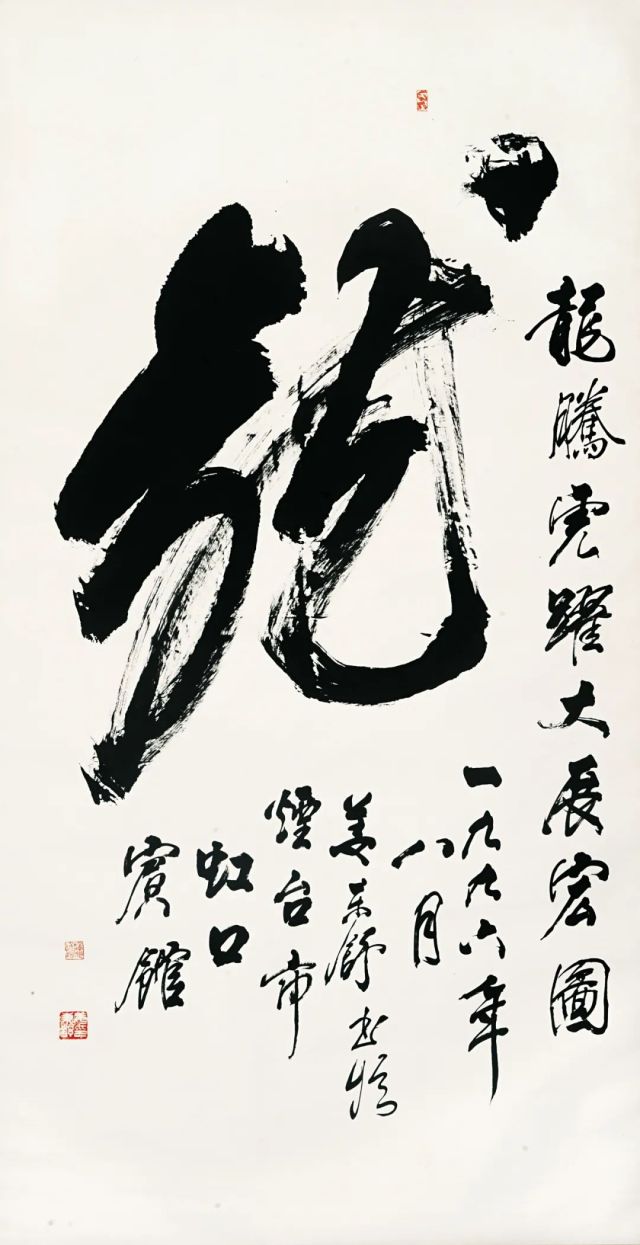 龍
龍騰虎躍大展宏圖
一九九六年
八月
姜东舒书於
煙台市
虹口
賓館